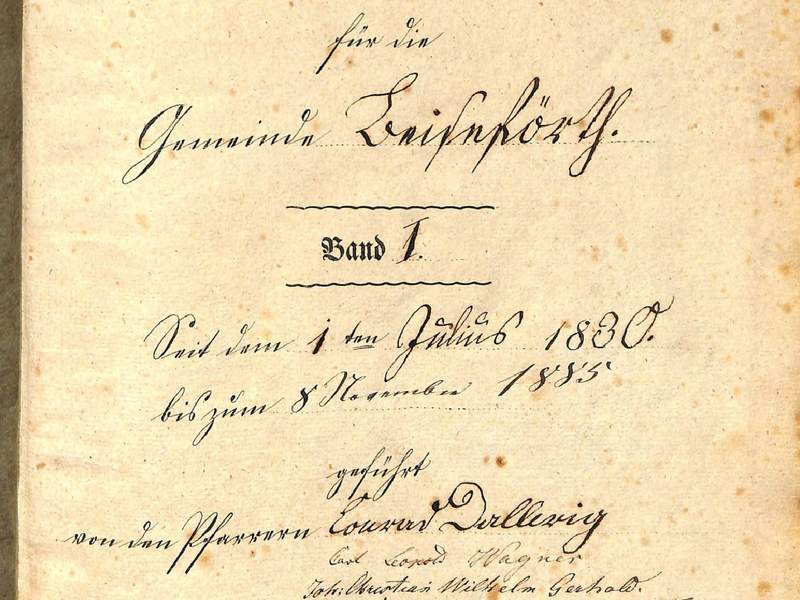 für die
Gemeinde Beiseförth.
Band 1.
Seit dem 1 ten Julius 1830.
bis zum 8 November 1885
geführt
von den Pfarrern Conrad Dallwig
Carl Leopold Wagner
Joh: Christian Wilhelm Gerhold.